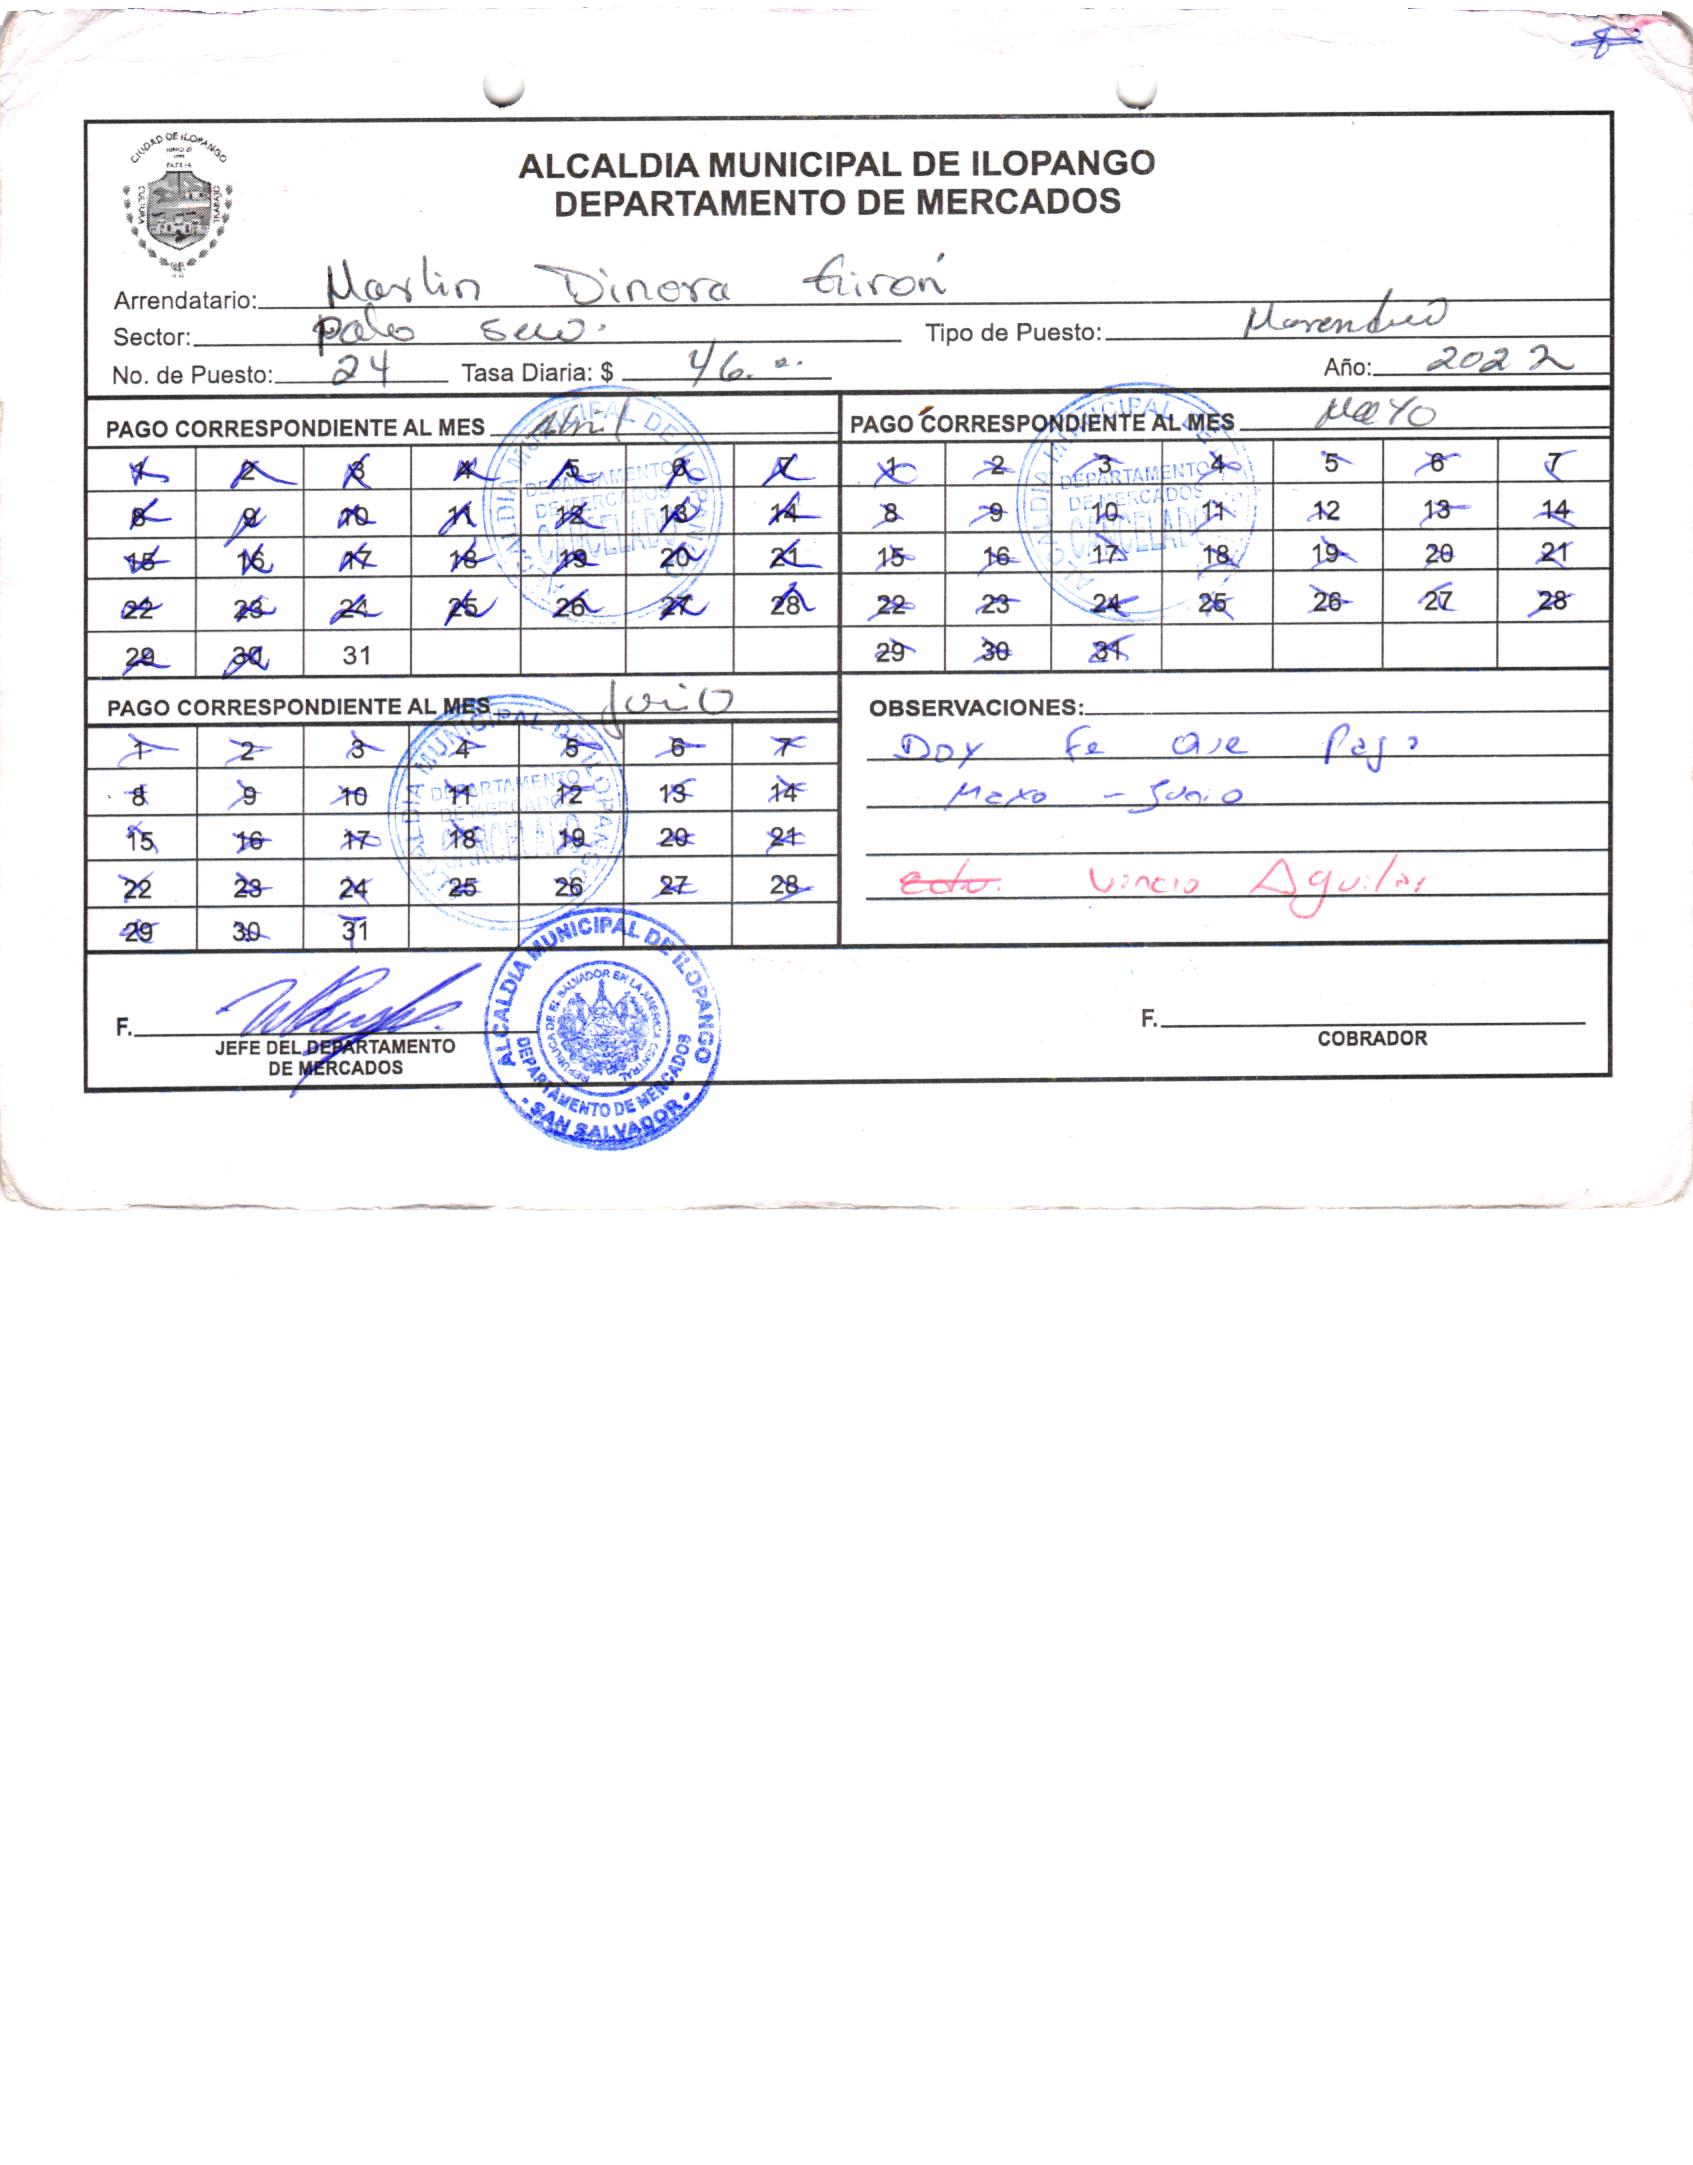 CIUDAD DE ILOPANGO
CULTURA
TRABAJO
ALCALDIA MUNICIPAL DE ILOPANGO
DEPARTAMENTO DE MERCADOS
Arrendatario: Marlin Dinora Girón
Sector: Palo seco. Tipo de Puesto:
No. de Puesto: 24 Tasa Diaria: $ Año: 2022
PAGO CORRESPONDIENTE AL MES Abril
1 2 3 4 5 6 7
8 9 10 11 12 13 14
15 16 17 18 19 20 21
22 23 24 25 26 27 28
29 30 31
ALCALDIA MUNICIPAL DE ILOPANGO
DEPARTAMENTO
DE MERCADOS
CANCELADO
PAGO CORRESPONDIENTE AL MES MaYO
1 2 3 4 5 6 7
8 9 10 11 12 13 14
15 16 17 18 19 20 21
22 23 24 25 26 27 28
29 30 31
ALCALDIA MUNICIPAL DE
DEPARTAMENTO
DE MERCADOS
CANCELADO
PAGO CORRESPONDIENTE AL MES Junio
1 2 3 4 5 6 7
8 9 10 11 12 13 14
15 16 17 18 19 20 21
22 23 24 25 26 27 28
29 30 31
ALCALDIA MUNICIPAL DE ILOPANGO
DEPARTAMENTO
DE MERCADOS
CANCELADO
OBSERVACIONES:
Doy Fe que Pago
Mayo - Junio
Aguilar
F.
JEFE DEL DEPARTAMENTO
DE MERCADOS
ALCALDIA MUNICIPAL DE ILOPANGO
REPUBLICA DE EL SALVADOR EN LA AMERICA CENTRAL
DEPARTAMENTO DE MERCADOS
· SAN SALVADOR ·
F.
COBRADOR